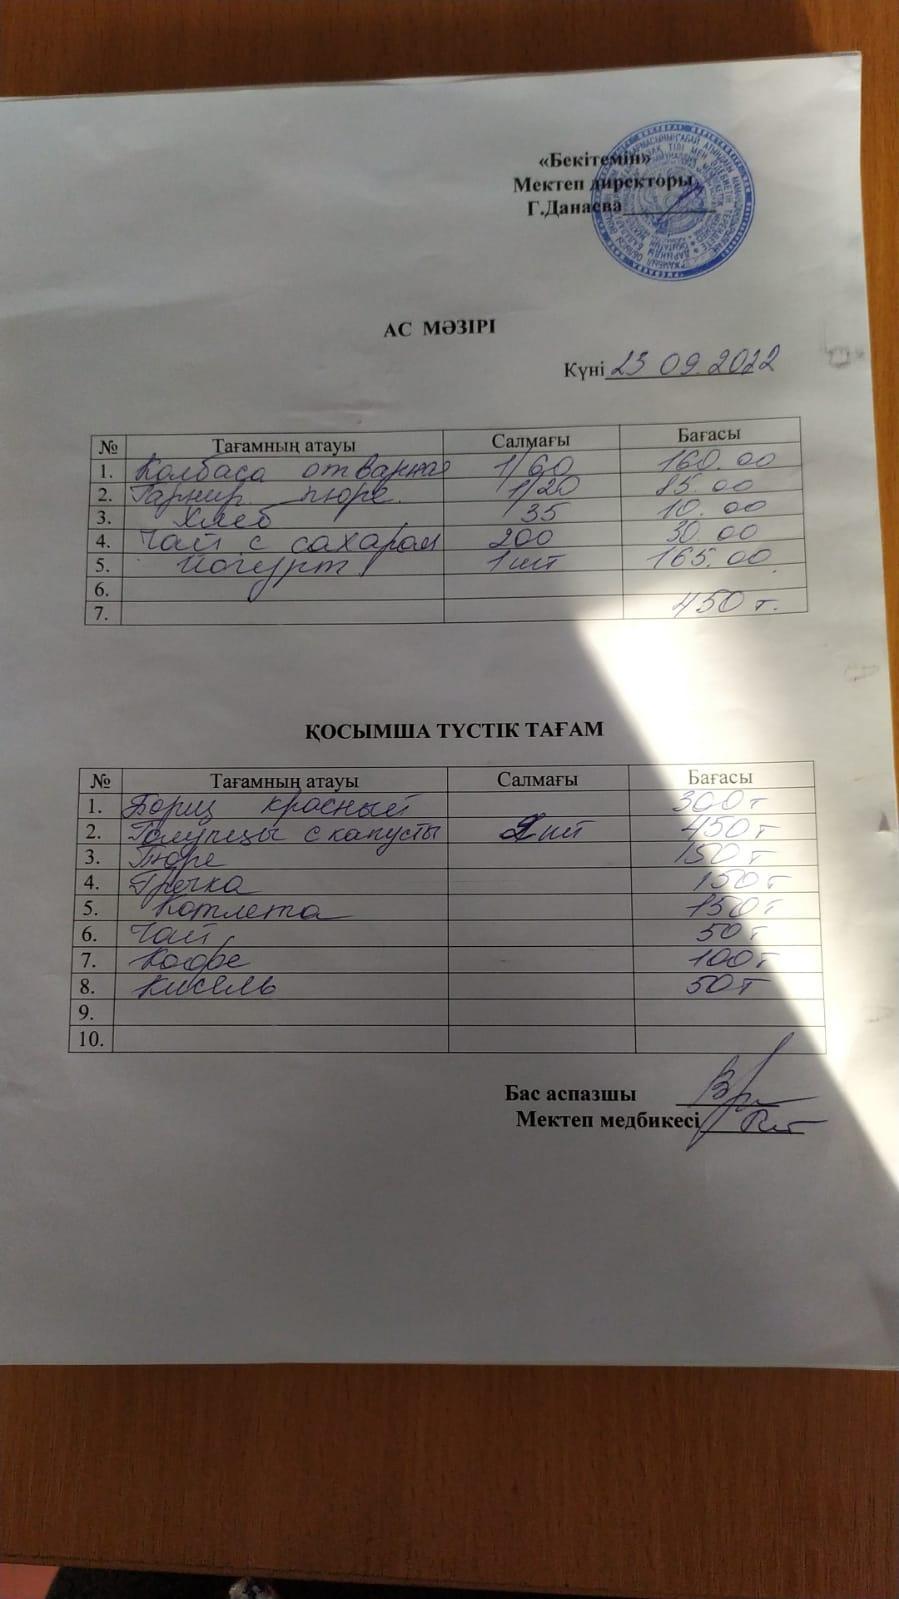 «Бекітемін»
Мектеп директоры
Г.Данаева
АС МӘЗІРІ
Күні 23 09.2022
№ Тағамның атауы Салмағы Бағасы
1. Колбаса отварная 1/60 160.00
2. Гарнир пюре 1/20 85.00
3. Хлеб 35 10.00
4. Чай с сахаром 200 30.00
5. Йогурт 1 шт 165.00
6.
7. 450 т.
ҚОСЫМША ТҮСТІК ТАҒАМ
№ Тағамның атауы Салмағы Бағасы
1. Борщ красный 300 т
2. Голупцы с капусты 2 шт 450 т
3. Пюре 150 т
4. Гречка 150 т
5. Котлета 150 т
6. Чай 50 т
7. Кофе 100 т
8. Кисель 50 т
9.
10.
Бас аспазшы
Мектеп медбикесі